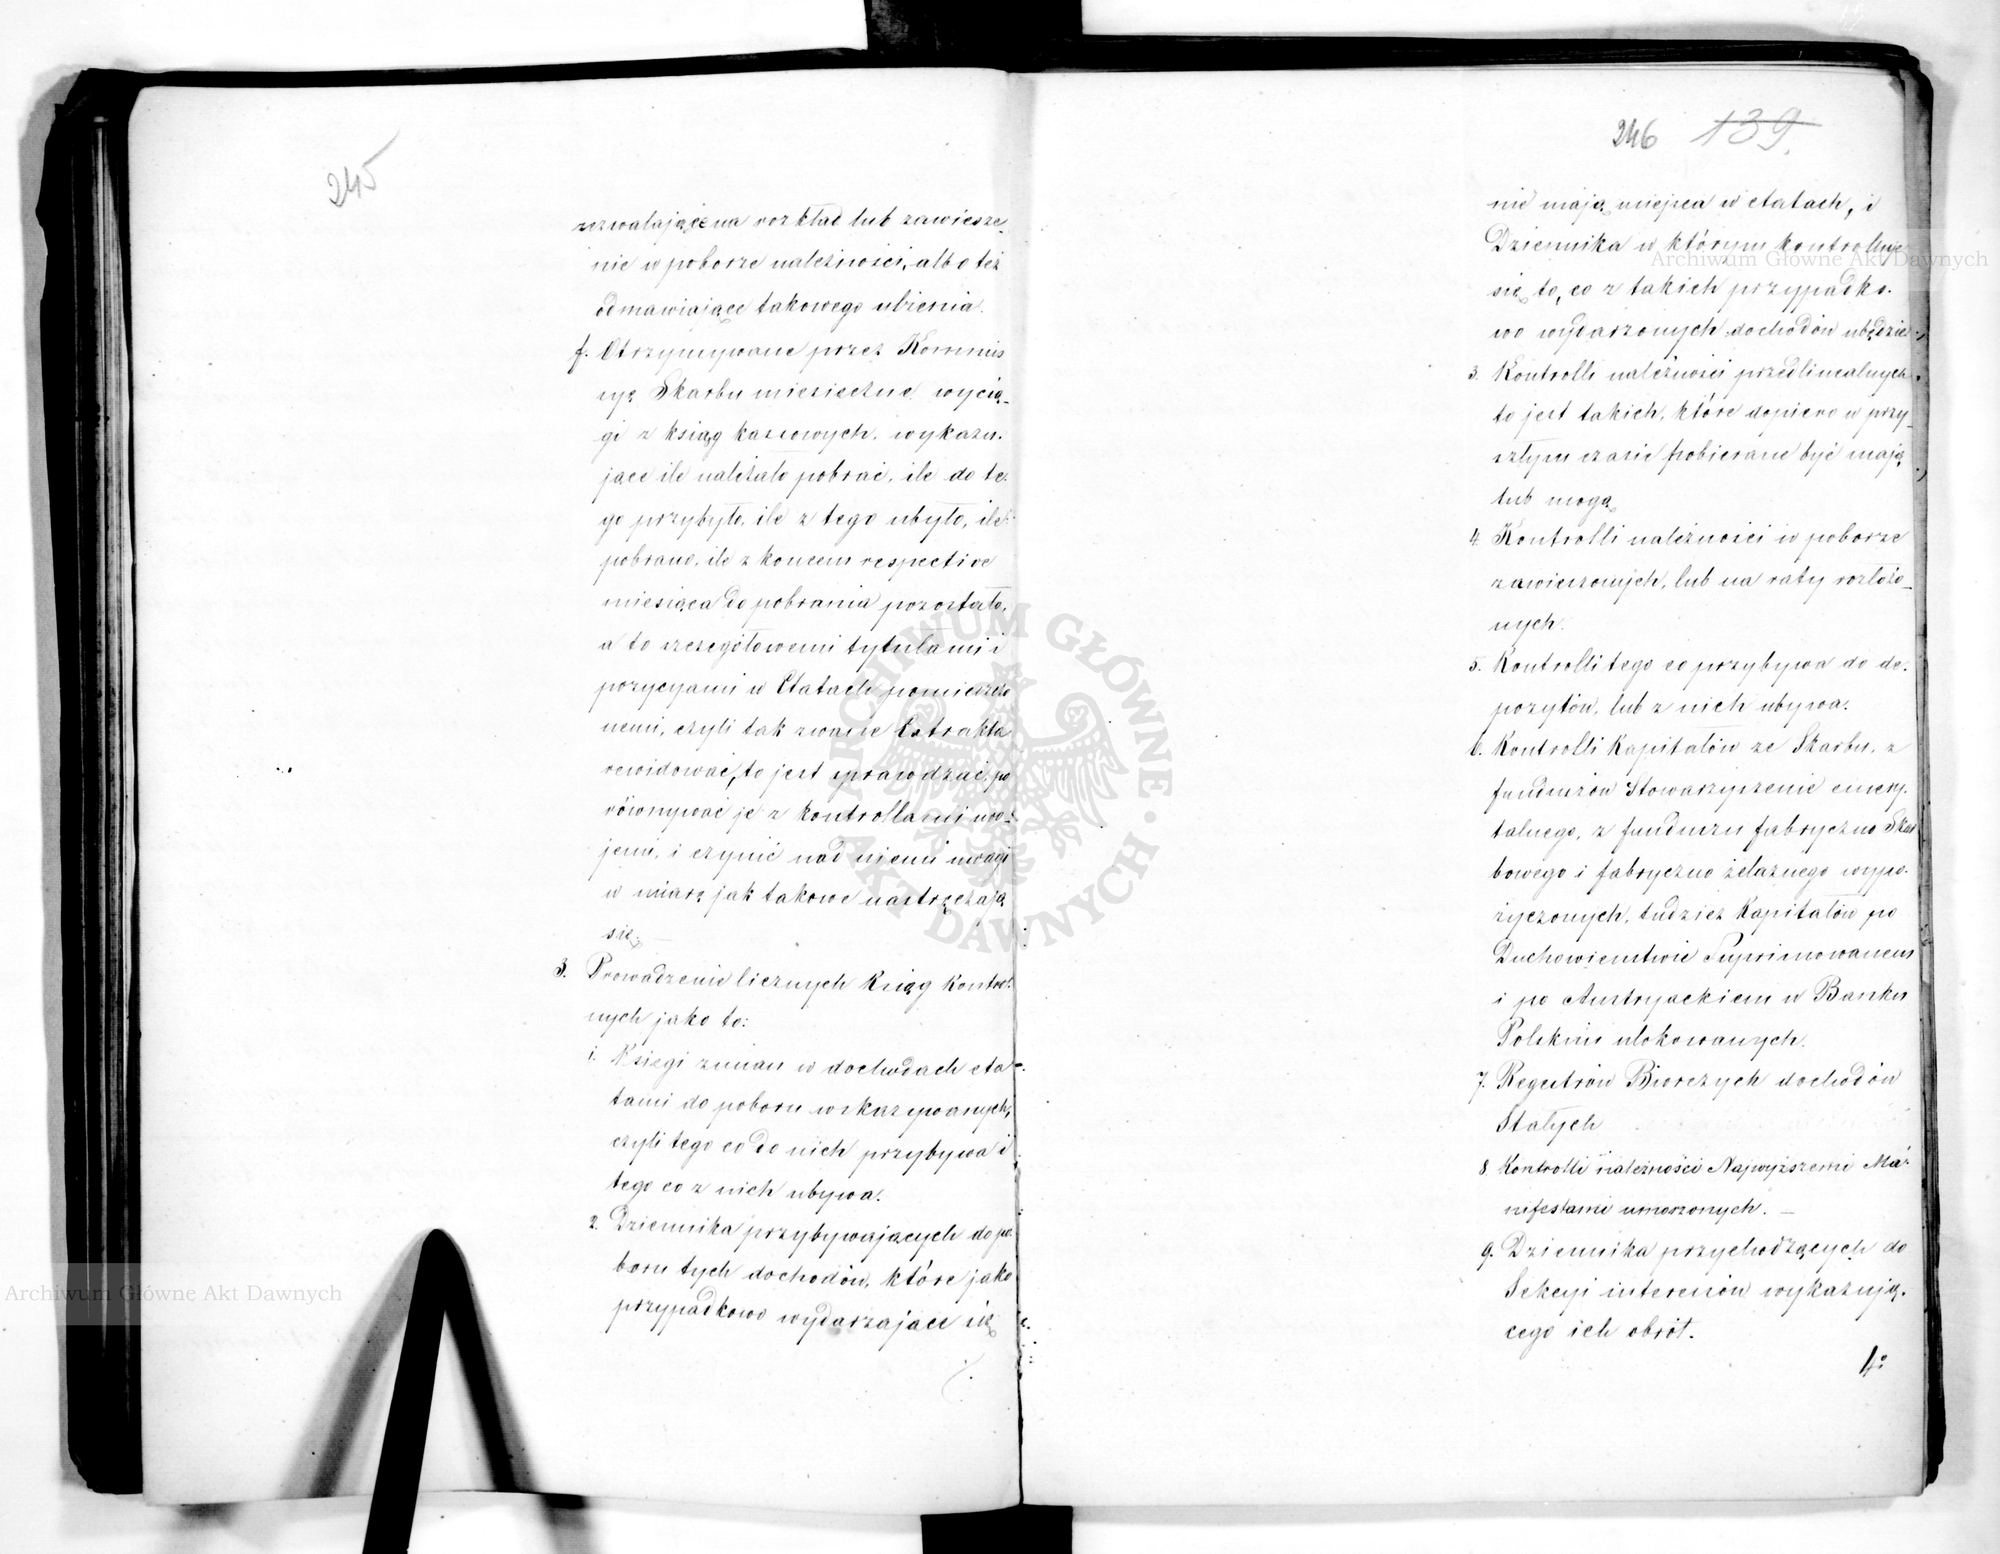 245
zezwalające na rozkład lub zawiesze-
nie w poborze należności, albo też
odmawiające takowego ulżenia.
f. Otrzymywane przez Kommis
syę Skarbu miesięczne wycią-
gi z ksiąg kassowych, wykazu-
jące ile należało pobrać, ile do te-
go przybyło, ile z tego ubyło, ile
pobrano, ile z końcem respective
miesiąca do pobrania pozostało,
a to szczegółowemi tytułami i
pozycyami w Etatach pomieszczo
nemi, czyli tak zwane Extrakta
rewidować, to jest sprawdzać, po
równywać je z kontrollami swo-
jemi, i czynić nad niemi uwagi
w miarę jak takowe nastręczają
się. —
3. Prowadzenie licznych Ksiąg Kontrol-
nych jako to:
1. Księgi zmian w dochodach eta-
tami do poboru wskazywanych,
czyli tego co do nich przybywa i
tego co z nich ubywa.
2. Dziennika przybywających do po-
boru tych dochodów, które jako
przypadkowo wydarzające się
246 139.
nie mają miejsca w etatach, i
Dziennika w którym kontrolluje
się to, co z takich przypadko-
wo wydarzonych dochodów ubędzie.
3. Kontrolli należności przedlimealnych
to jest takich, które dopiero w przy-
szłym czasie pobierane być mają
lub mogą.
4. Kontrolli należności w poborze
zawieszonych, lub na raty rozłożo-
nych.
5. Kontrolli tego co przybywa do de-
pozytów, lub z nich ubywa.
6. Kontrolli Kapitałów ze Skarbu, z
funduszów Stowarzyszenie emery-
talnego, z funduszu fabryczno Skar
bowego i fabryczno żelaznego wypo-
życzonych, tudzież Kapitałów po
Duchowieństwie Suprimowanem
i po Austryackiem w Banku
Polskim ulokowanych.
7. Regestrów Biorczych dochodów
Stałych
8 Kontrolli należności Najwyższemi Ma-
nifestami umorzonych. —
9. Dziennika przychodzących do
Sekcyi interesów wykazują-
cego ich obrót.
4°
ARCHIWUM GŁÓWNE AKT DAWNYCH
Archiwum Główne Akt Dawnych
Archiwum Główne Akt Dawnych